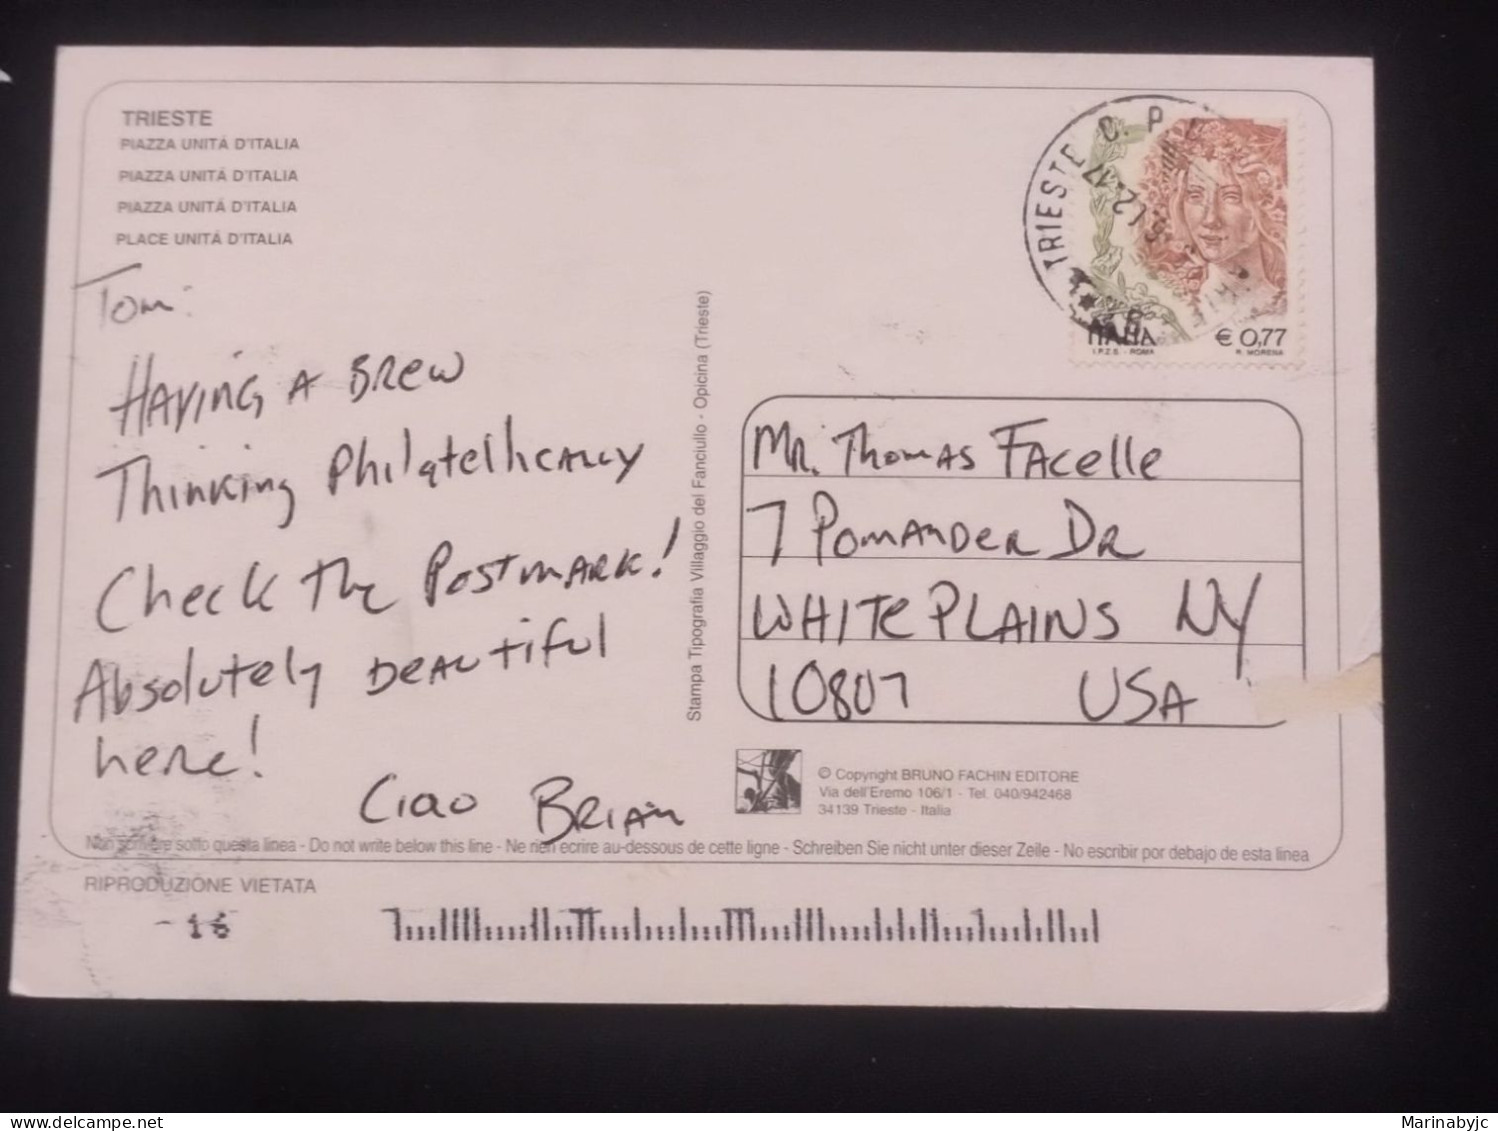 TRIESTE
PIAZZA UNITÁ D'ITALIA
PIAZZA UNITÁ D'ITALIA
PIAZZA UNITÁ D'ITALIA
PLACE UNITÁ D'ITALIA
Tom:
HAVING A BREW
Thinking Philatelhically
Check The Postmark!
Absolutely BEAUTIFUL
here!
Ciao BRIAN
Stampa Tipografia Villaggio del Fanciullo - Opicina (Trieste)
TRIESTE C.P.
ITALIA
€ 0,77
I.P.Z.S. - ROMA
R. MORENA
MR. Thomas FAcelle
7 POMANDER DR
WHITE PLAINS NY
10807 USA
© Copyright BRUNO FACHIN EDITORE
Via dell'Eremo 106/1 - Tel. 040/942468
34139 Trieste - Italia
Non scrivere sotto questa linea - Do not write below this line - Ne rien ecrire au-dessous de cette ligne - Schreiben Sie nicht unter dieser Zeile - No escribir por debajo de esta linea
RIPRODUZIONE VIETATA
- 16
www.delcampe.net
Marinabyjc